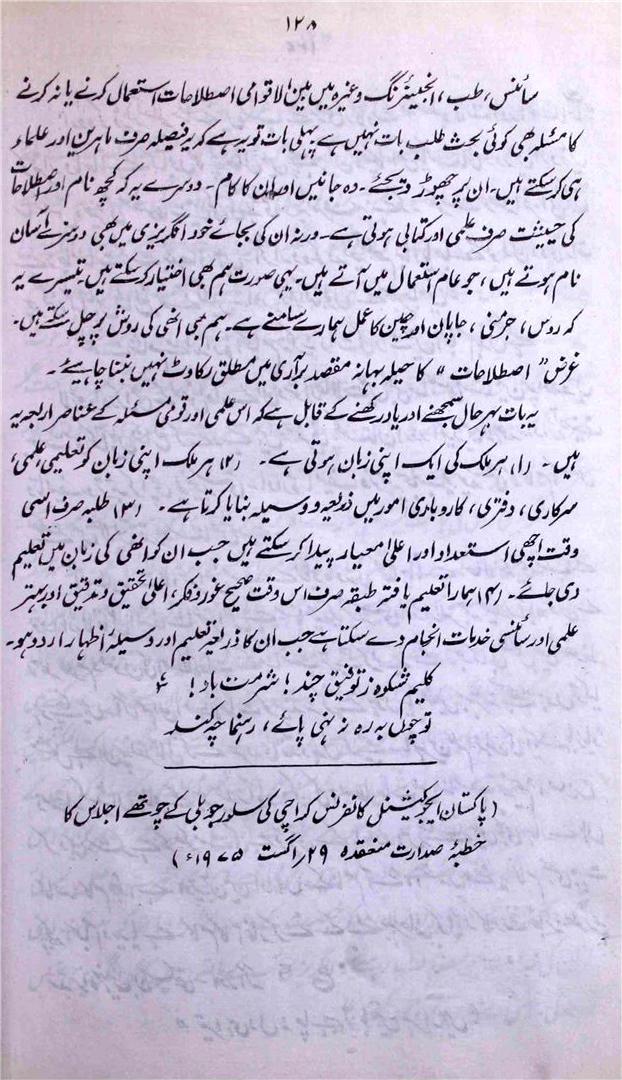 ۱۲۸
سائنس، طب، انجینئرنگ وغیرہ میں بین الاقوامی اصطلاحات استعمال کرنے یا نہ کرنے
کا مسئلہ بھی کوئی بحث طلب بات نہیں ہے پہلی بات تو یہ ہے کہ یہ فیصلہ صرف ماہرین اور علماء
ہی کر سکتے ہیں۔ ان پر چھوڑ دیجئے۔ وہ جانیں اور ان کا کام۔ دوسرے یہ کہ کچھ نام اور اصطلاحات
کی حیثیت صرف علمی اور کتابی ہوتی ہے۔ ورنہ ان کی بجائے خود انگریزی میں بھی دوسرے آسان
نام ہوتے ہیں، جو عام استعمال میں آتے ہیں۔ یہی صورت ہم بھی اختیار کر سکتے ہیں۔ تیسرے یہ
کہ روس، جرمنی، جاپان اور چین کا عمل ہمارے سامنے ہے۔ ہم بھی انھی کی روش پر چل سکتے ہیں۔
غرض "اصطلاحات" کا حیلہ بہانہ مقصد برآری میں مطلق رکاوٹ نہیں بننا چاہیے۔
یہ بات بہرحال سمجھنے اور یاد رکھنے کے قابل ہے کہ اس علمی اور قومی مسئلہ کے عناصر اربعہ یہ
ہیں۔ (۱) ہر ملک کی ایک اپنی زبان ہوتی ہے۔ (۲) ہر ملک اپنی زبان کو تعلیمی، علمی،
سرکاری، دفتری، کاروباری امور میں ذریعہ و وسیلہ بنایا کرتا ہے۔ (۳) طلبہ صرف اسی
وقت اچھی استعداد اور اعلیٰ معیار پیدا کر سکتے ہیں جب ان کو انھی کی زبان میں تعلیم
دی جائے۔ (۴) ہمارا تعلیم یافتہ طبقہ صرف اس وقت صحیح غور و فکر، اعلیٰ تحقیق و تدقیق اور بہتر
علمی اور سائنسی خدمات انجام دے سکتا ہے جب ان کا ذریعۂ تعلیم اور وسیلۂ اظہار اردو ہو۔
کلیم شکوہ ز توفیق چند! شرمت باد!
تو چوں بہ رہ نہ نہی پائے، رہنما چہ کند
(پاکستان ایجوکیشنل کانفرنس کراچی کی سلور جوبلی کے چوتھے اجلاس کا
خطبۂ صدارت منعقدہ ۲۹ / اگست ۱۹۷۵ء)